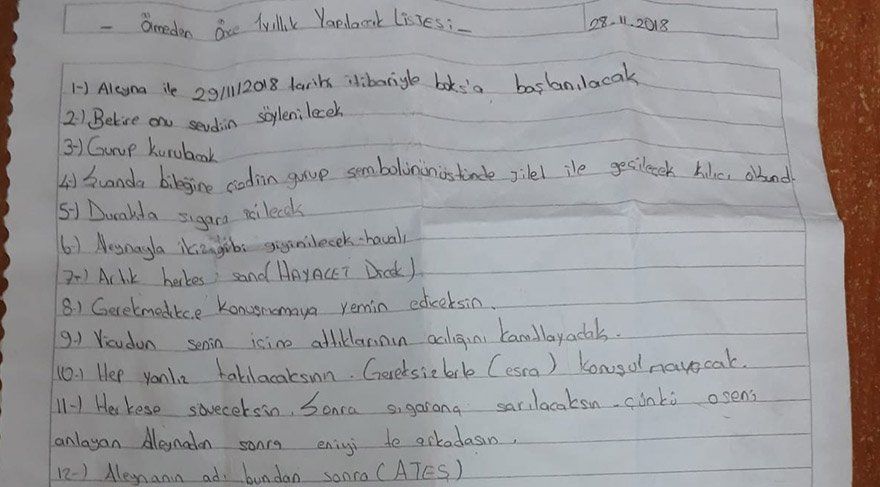 - Ölmeden Önce 1 yıllık Yapılacak LiSTESi -
28.11.2018
1-) Aleyna ile 29/11/2018 tarihi itibariyle boks'a başlanılacak
2-) Bekire onu sevdiin söylenilecek
3-) Gurup kurulacak
4-) Şuanda bileğine çizdiin gurup sembolününüstünde jilet ile geçilecek kılıcı
5-) Durakta sigara içilecek
6-) Aleynayla ikizgibi giyinilecek-havalı
7-) Artık herkes sana (HAYALET
8-) Gerekmedikce konuşmamaya yemin ediceksin.
9-) Vücudun senin içine attıklarının acılığını kanıtlayacak.
10-) Hep yanlız takılacaksın. Gereksizlerle (esra) konuşulmayacak.
11-) Herkese söveceksin. Sonra sigarana sarılacaksın. çünkü o seni
anlayan Aleynadan sonra eniyi arkadaşın.
12-) Aleynanın adı bundan sonra (ATEŞ)